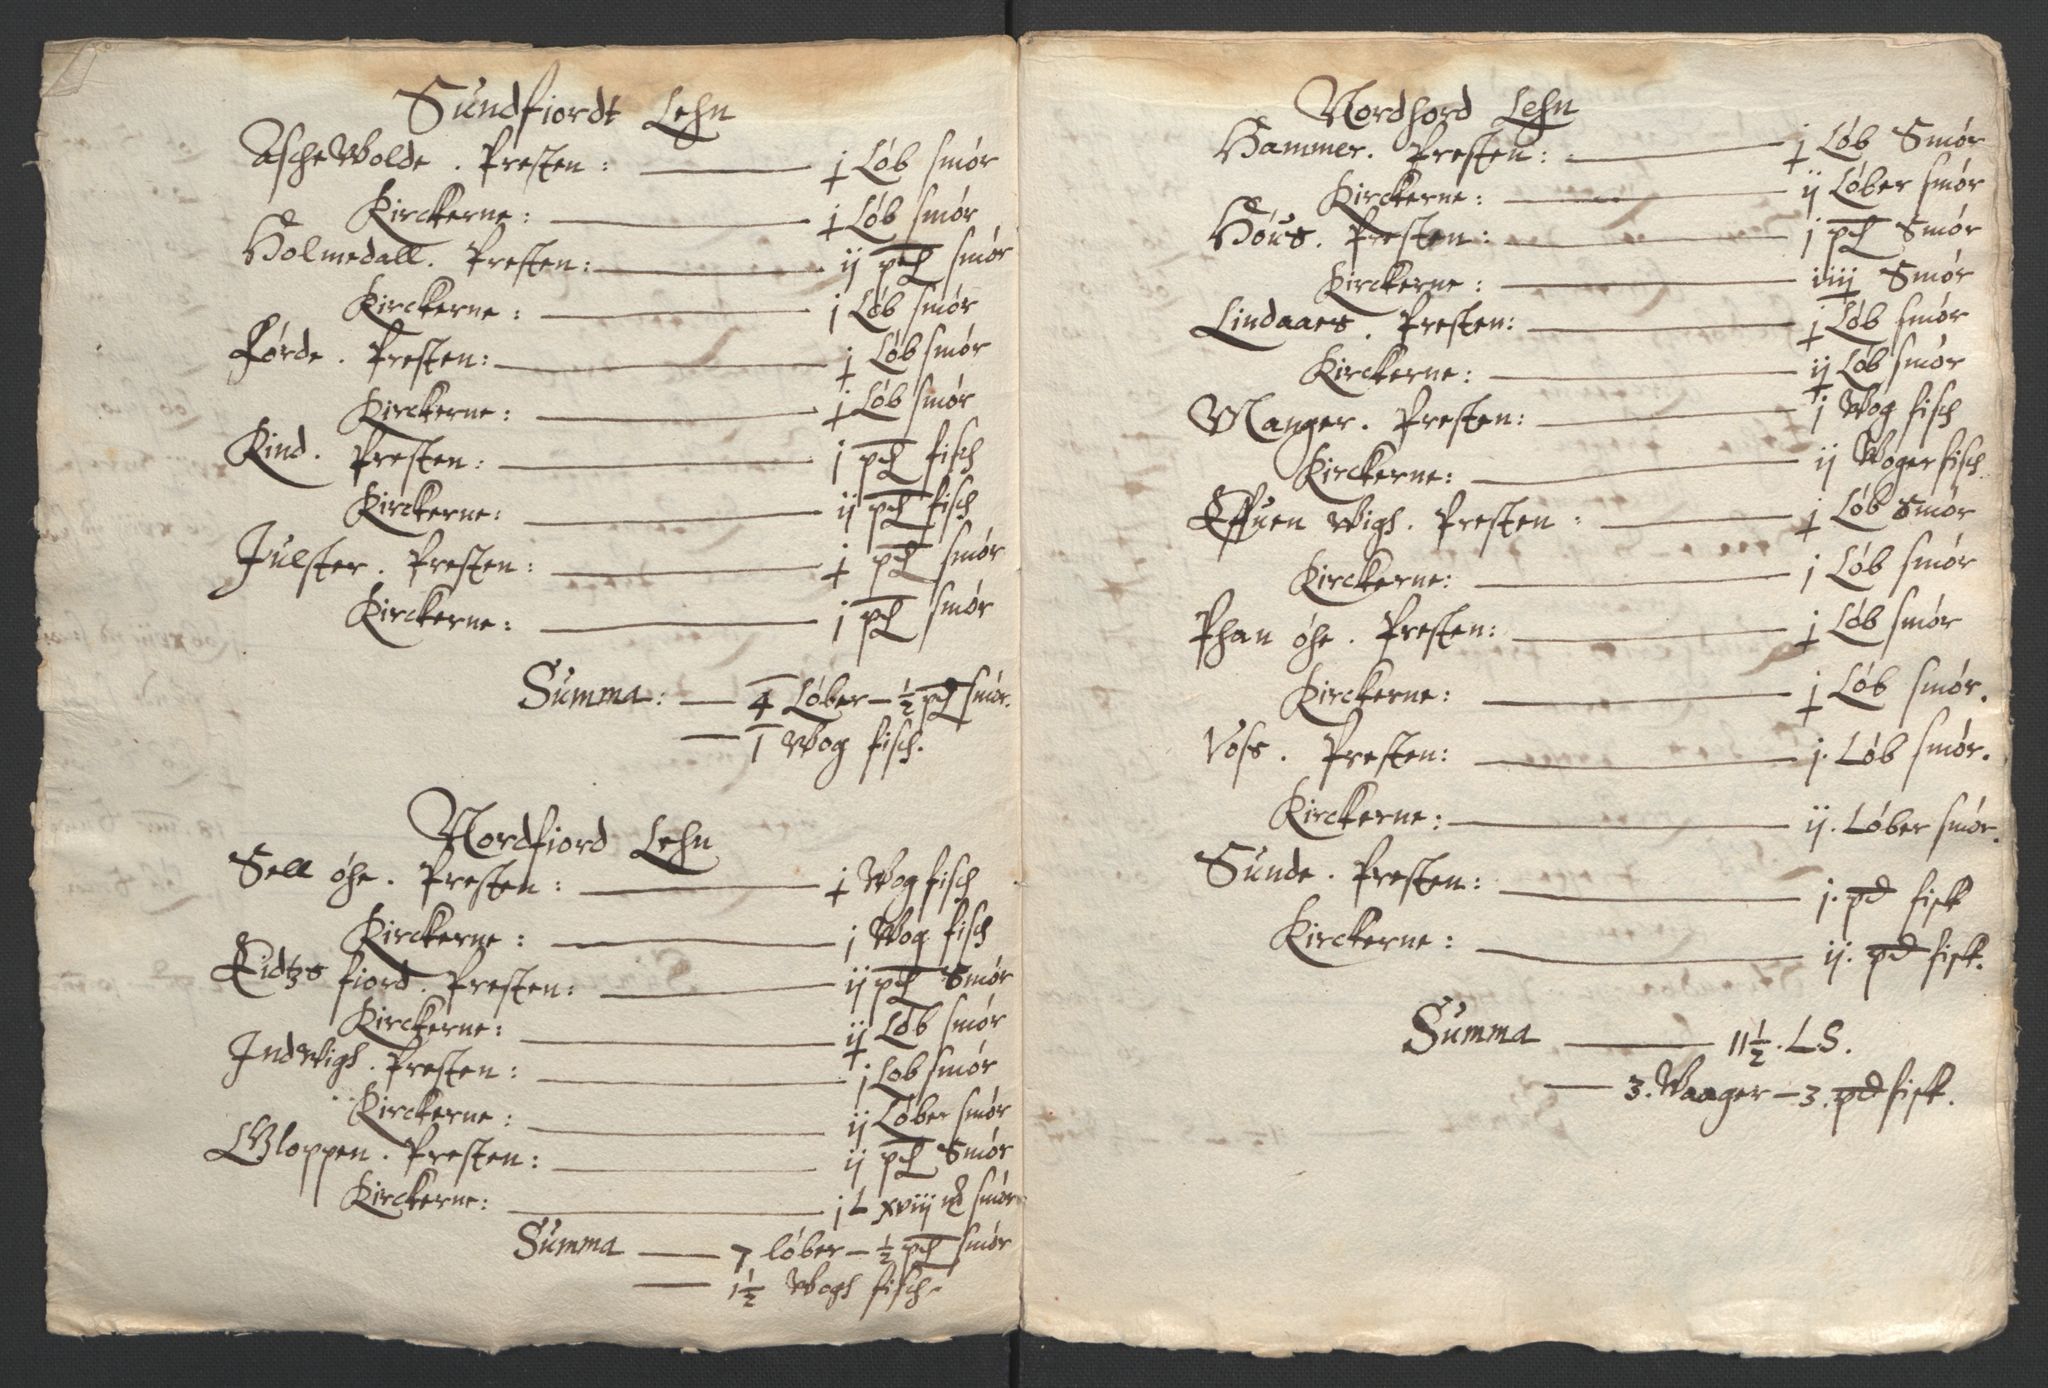 Sundfiordt Lehn
Aschewolde. Presten: j Løb smør
Kirckerne: j Løb smør
Holmedall. Presten: ij pd smør
Kirckerne: j Løb smør
Førde. Presten: j Løb smør
Kirckerne: j Løb smør
Kind. Presten: j pd fisch
Kirckerne: ij pd fisch
Julster. Presten: j pd smør
Kirckerne: j pd smør
Summa: 4 Løber – ½ pd smør.
1 Wog fisch.
Nordfiord Lehn
Sell øhe. Presten: j Wog fisch
Kirckerne: j Wog fisch
Eidtzs fiord. Presten: ij pd Smør
Kirckerne: ij Løb smør
Indwigh. Presten: j Løb smør
Kirckerne: ij Løber smør
Gloppen. Presten: ij pd Smør
Kirckerne: j L xviij md smør
Summa 7 løber – ½ pd smør
1½ Wogh fisch.
Nordhord Lehn
Hammer. Presten: j Løb Smør
Kirckerne: ij Løber smør
Høus. Presten: j pd Smør
Kirckerne: iiij Smør
Lindaaes. Presten: j Løb smør
Kirckerne: ij Løb smør
Manger. Presten: j Wog fisch
Kirckerne: ij Woger fisch.
Effuen wigh. Presten: j Løb Smør
Kirckerne: j Løb smør
Phan øhe. Presten: j Løb smør
Kirckerne: j Løb smør.
Voss. Presten: j. Løb smør.
Kirckerne: ij. Løber smør.
Sunde. Presten: j. pd fisk
Kirckerne: ij. pd fisk.
Summa 11½. L.S.
3. Waager – 3. pd fisk.